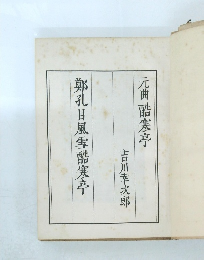 元曲酷寒亭
吉川幸次郎
鄭孔目風雪酷寒亭